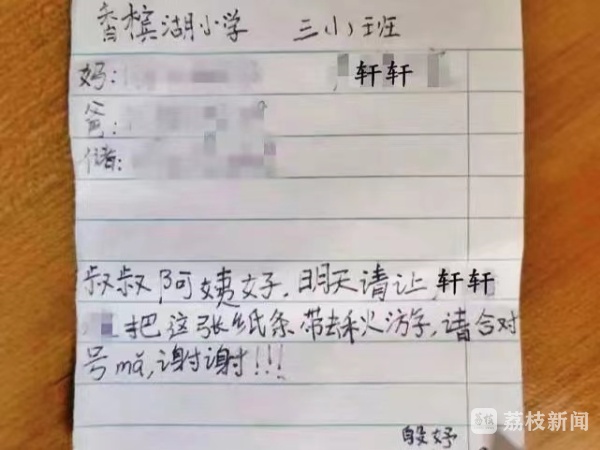 香槟湖小学 三(1)班
妈: 轩轩
爸:
储:
叔叔阿姨好.明天请让,轩轩
把这张纸条带去秋游字,请合对
号mǎ,谢谢!!!
殷妤
荔枝新闻